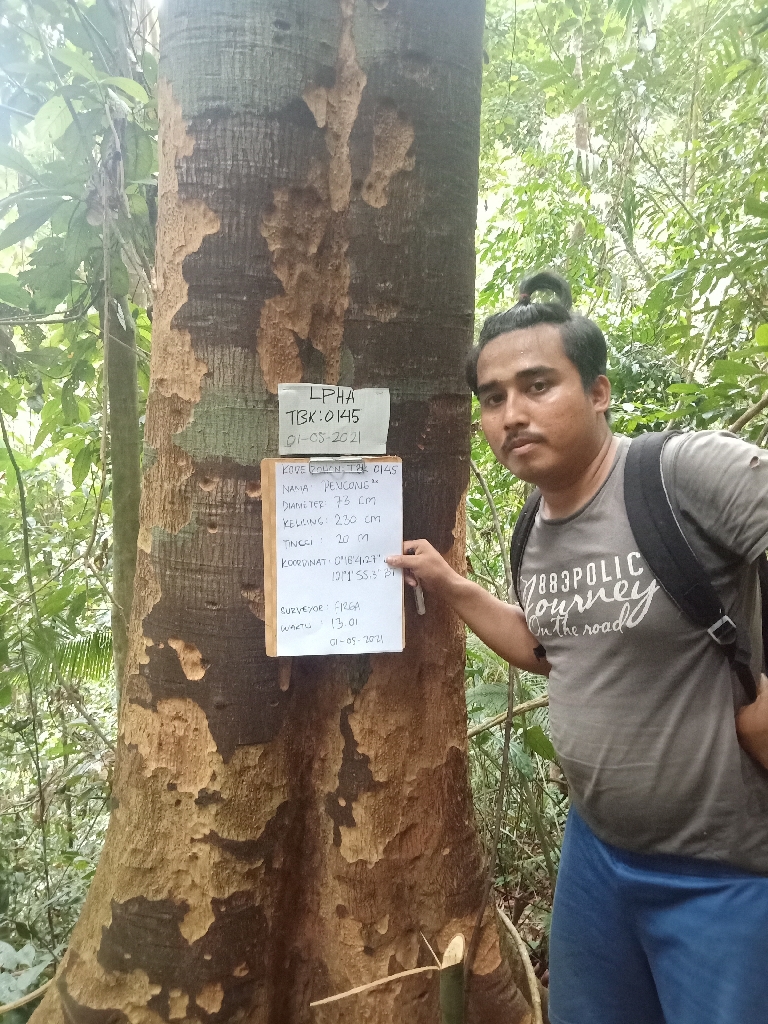 LPHA
TBK:0145
01-05-2021
KODE POHON: TBK 0145
NAMA:
DIAMETER: 73 CM
KELILING: 230 CM
TINGGI : 20 M
KOORDINAT: 0°18'4.27"
SURVEYOR: FIRGA
WAKTU : 13.01
01-05-2021
883POLICE
Journey
On the road